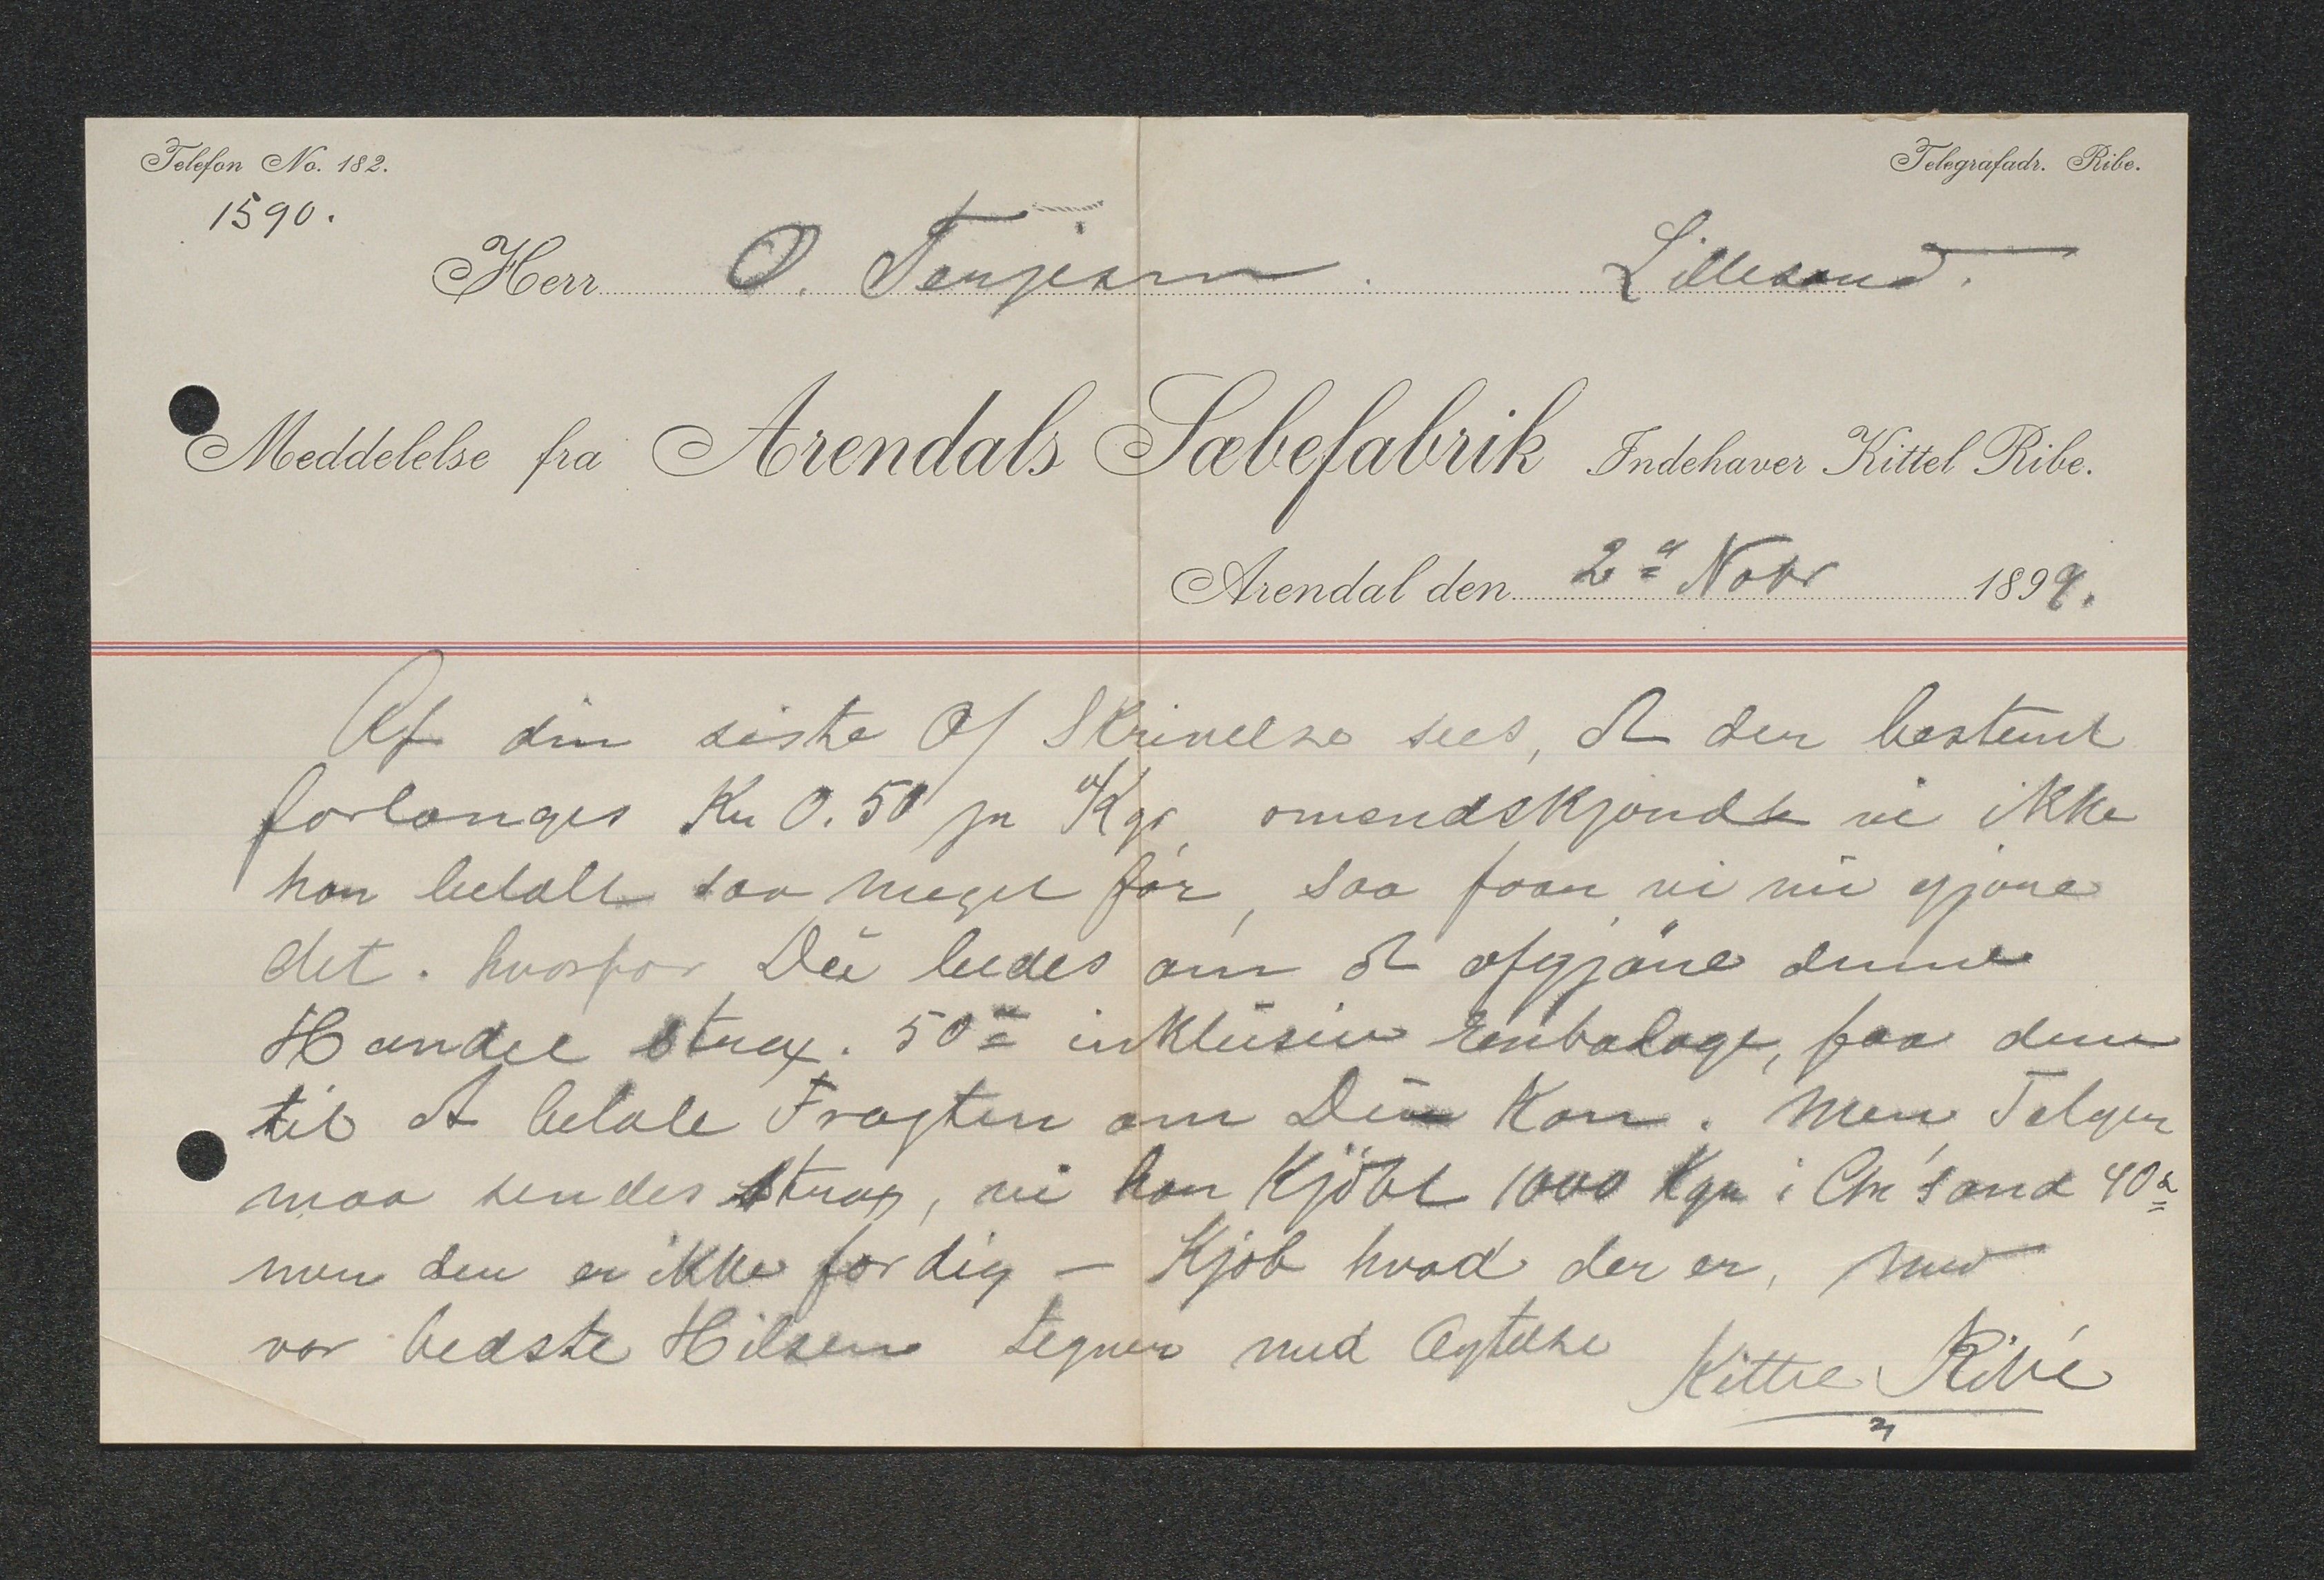 Telefon No. 182.
Telegrafadr. Ribe.
1590.
Herr O. Terjesen. Lillesand.
Meddelelse fra Arendals Sæbefabrik Indehaver Kittel Ribe.
Arendal den 2d Novr 1899.
Af din siste Af Skrivelse sees, at der bestemt
forlanges Kr 0.50 pr Kgr omendskjöndt vi ikke
har betalt saa meget för, saa faar vi nu gjöre
det. hvorfor Du bedes om at afgjöre denne
Handel strax. 50 inklusive Embalage, faa dem
til at betale Fragten om Du kan. Men Talgen
maa sendes strax, vi har Kjöbt 1000 Kgr i Chr'sand 40
men den er ikke fordig - Kjöb hvad der er, Med
vor bedste Hilsen tegner med Agtelse
Kittel Ribe